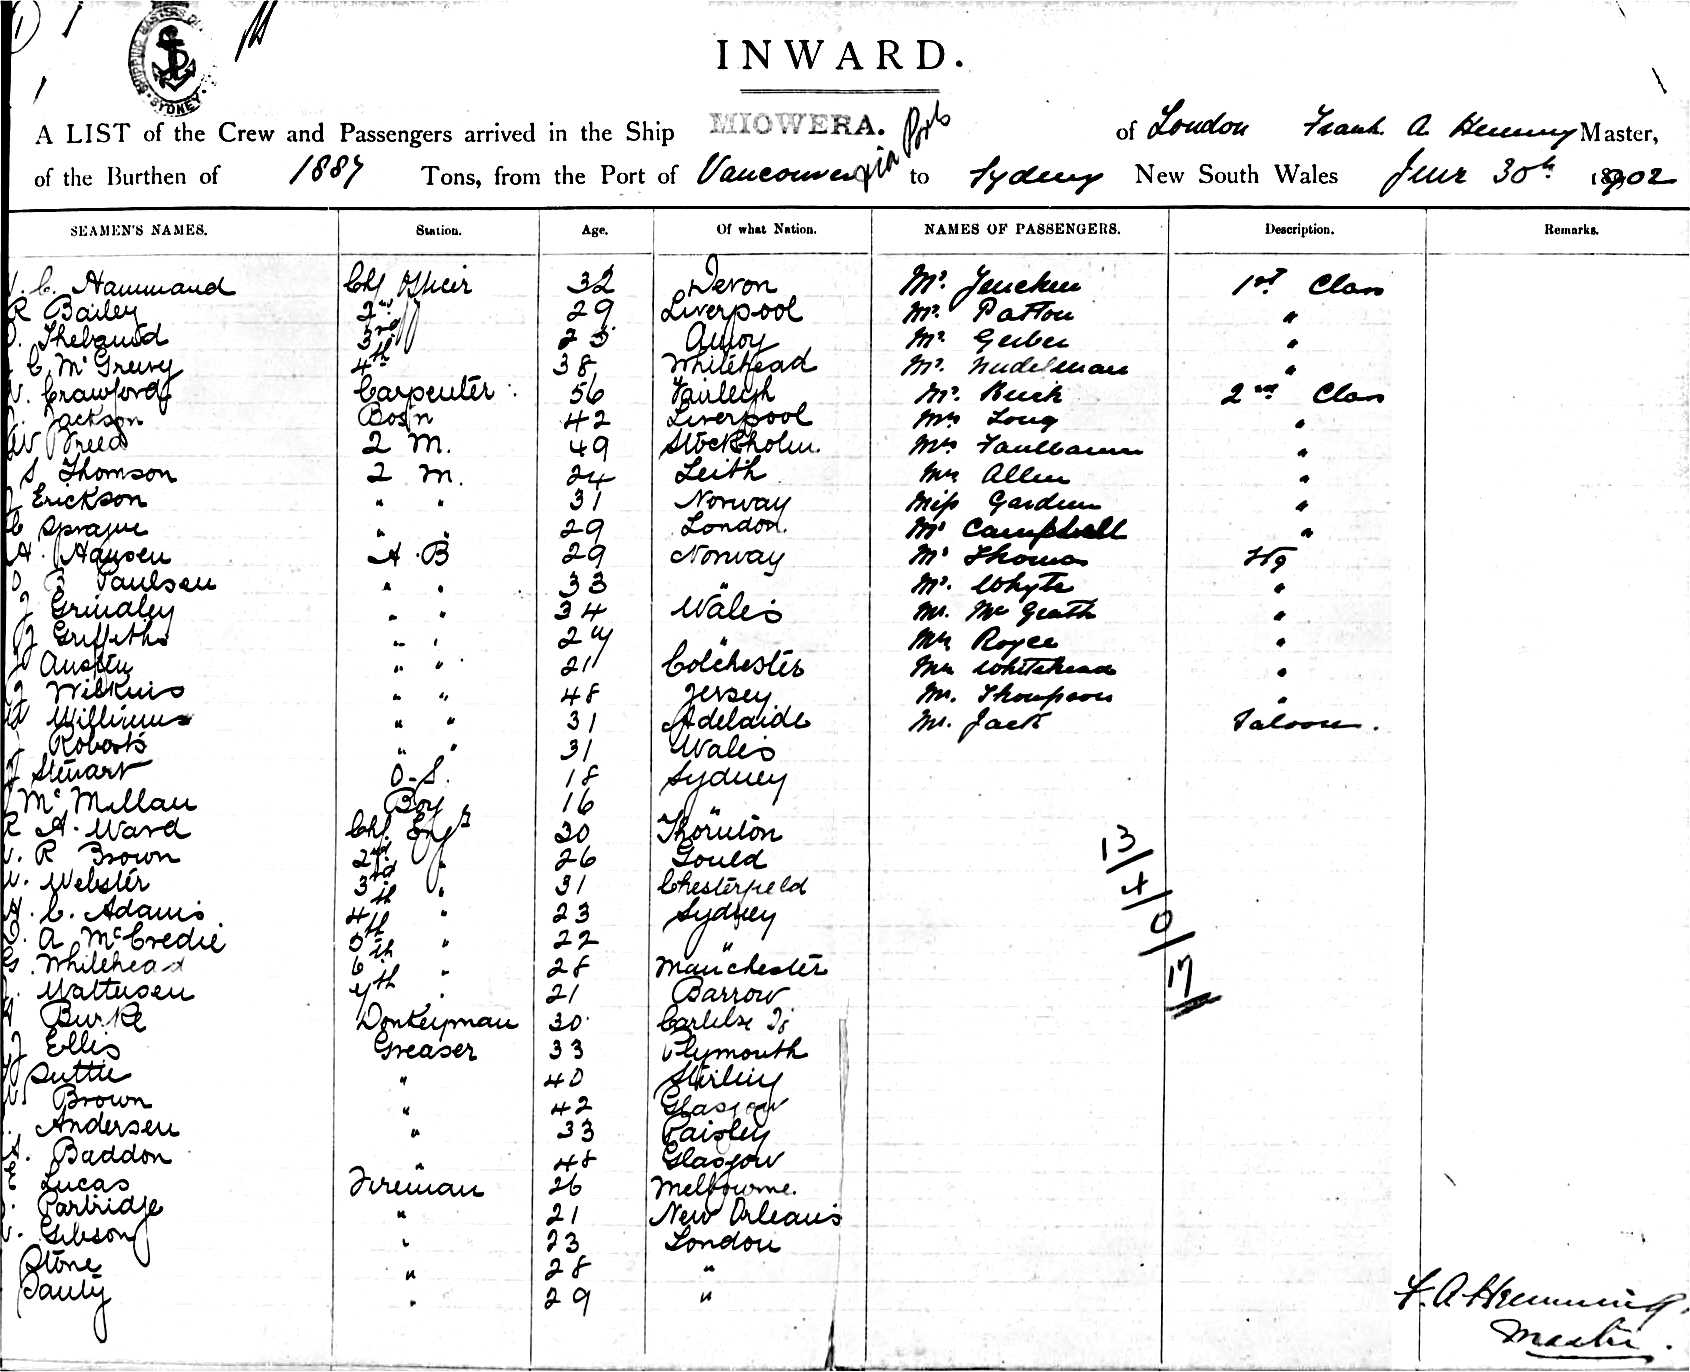 INWARD.
SHIPPING MASTERS SYDNEY
A LIST of the Crew and Passengers arrived in the Ship MIOWERA. of London Frank A Hemming Master,
of the Burthen of 1887 Tons, from the Port of Vancouver via Ports to Sydney New South Wales June 30th 1902
SEAMEN'S NAMES. Station. Age. Of what Nation. NAMES OF PASSENGERS. Description. Remarks.
C. Hammand Chf Officer 32 Devon Mr. Jencken 1st Class
R Bailey 2nd " 29 Liverpool Mr. Patton "
Thebaud 3rd " 25 Amoy Mr Gerber "
C McGreevy 4th " 38 Whitehead Mr. Nudelman "
Crawford Carpenter 56 Fairleigh Mr. Buck 2nd Class
Jackson Bosn 42 Liverpool Mrs Long "
Breed 2 M. 49 Stockholm. Mrs Faulbaum "
S Thomson 2 M. 24 Leith Mrs Allen "
Erickson " " 31 Norway Miss Gardiner "
C Sprague " " 29 London. Mr Campbell "
A. Hansen A.B 29 Norway Mr Thomas Stg
B Paulsen " " 33 " Mr. Whyte "
J Grindley " " 34 Wales Mr. McGrath "
J Griffiths " " 24 " Mrs Royce "
J Austin " " 21 Colchester Mrs Whitehead "
J Wilkins " " 48 Jersey Mr. Thompson "
W Williams " " 31 Adelaide Mr. Jack Saloon.
Roberts " " 31 Wales
J Stewart O.S. 18 Sydney
McMillan Boy 16 "
R A. Ward Chf. Engr 30 Thornton
R Brown 2nd " 26 Gould
W. Webster 3rd " 31 Chesterfield
H. C. Adams 4th " 23 Sydney
A McCredie 5th " 22 "
G. Whitehead 6th " 28 Manchester
Mattusen 7th " 21 Barrow
Burke Donkeyman 30 Carlisle
J Ellis Greaser 33 Plymouth
Suttie " 40 Stirling
Brown " 42 Glasgow
Andersen " 33 Paisley
A. Baddon " 48 Glasgow
E Lucas Fireman 26 Melbourne.
Partridge " 21 New Orleans
Gibson " 23 London
Stone " 28 "
Pauly " 29 "
13/4/0/17
F. A Hemming.
Master.